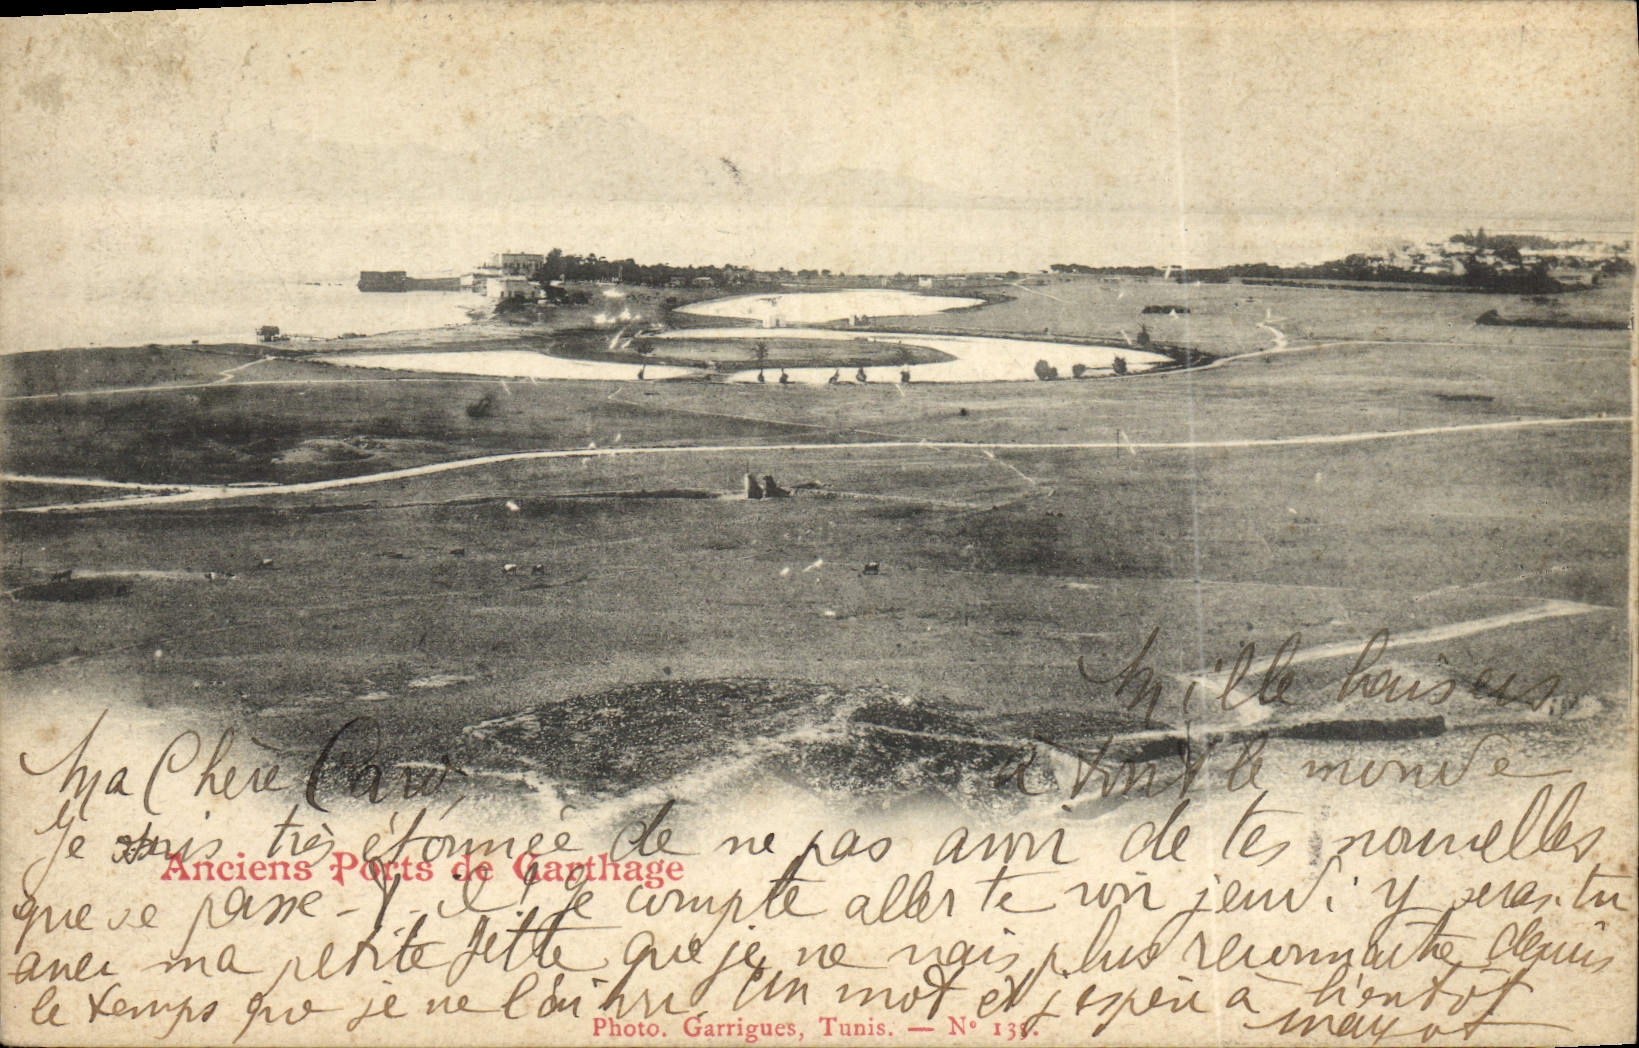 Mille baisers
à tout le monde
Ma Chère Caro
Je suis très étonnée de ne pas avoir de tes nouvelles
Anciens Ports de Carthage
que se passe-t-il! Je compte aller te voir jeudi y seras-tu
avec ma petite Jette que je ne vais plus reconnaitre depuis
le temps que je ne l'ai vu. Un mot et j'espère à bientôt
Photo. Garrigues, Tunis. — Nº